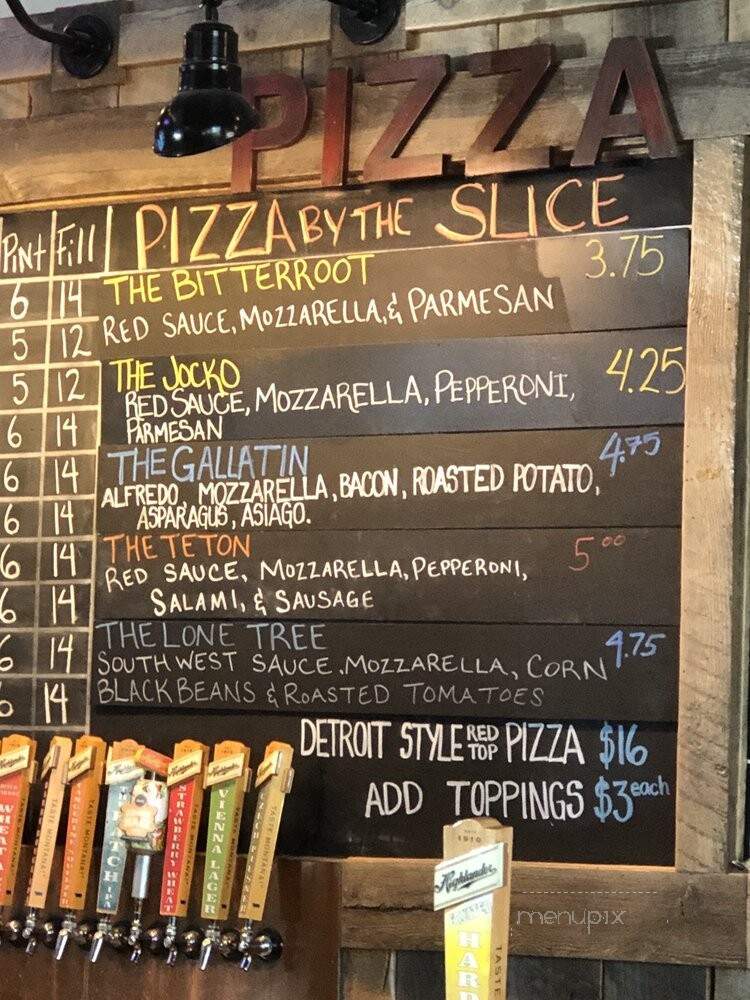 PIZZA
Pint Fill
PIZZA BY THE SLICE
6 14
5 12
5 12
6 14
6 14
6 14
6 14
6 14
6 14
6 14
THE BITTERROOT 3.75
RED SAUCE, MOZZARELLA, & PARMESAN
THE JOCKO 4.25
RED SAUCE, MOZZARELLA, PEPPERONI,
PARMESAN
THE GALLATIN 4.75
ALFREDO, MOZZARELLA, BACON, ROASTED POTATO,
ASPARAGUS, ASIAGO.
THE TETON 5.00
RED SAUCE, MOZZARELLA, PEPPERONI,
SALAMI, & SAUSAGE
THE LONE TREE 4.75
SOUTHWEST SAUCE, MOZZARELLA, CORN
BLACK BEANS & ROASTED TOMATOES
DETROIT STYLE RED TOP PIZZA $16
ADD TOPPINGS $3 each
STRAWBERRY WHEAT
VIENNA LAGER
TASTE MONTANA
1910
Highlander
HARD
TASTE
menupix